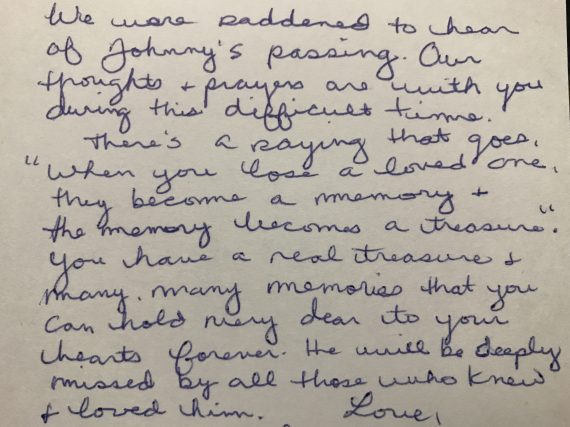 We were saddened to hear
of Johnny's passing. Our
thoughts + prayers are with you
during this difficult time.
There's a saying that goes,
"When you lose a loved one,
they become a memory +
the memory becomes a treasure".
You have a real treasure &
many, many memories that you
can hold very dear to your
hearts forever. He will be deeply
missed by all those who knew
& loved him. Love,